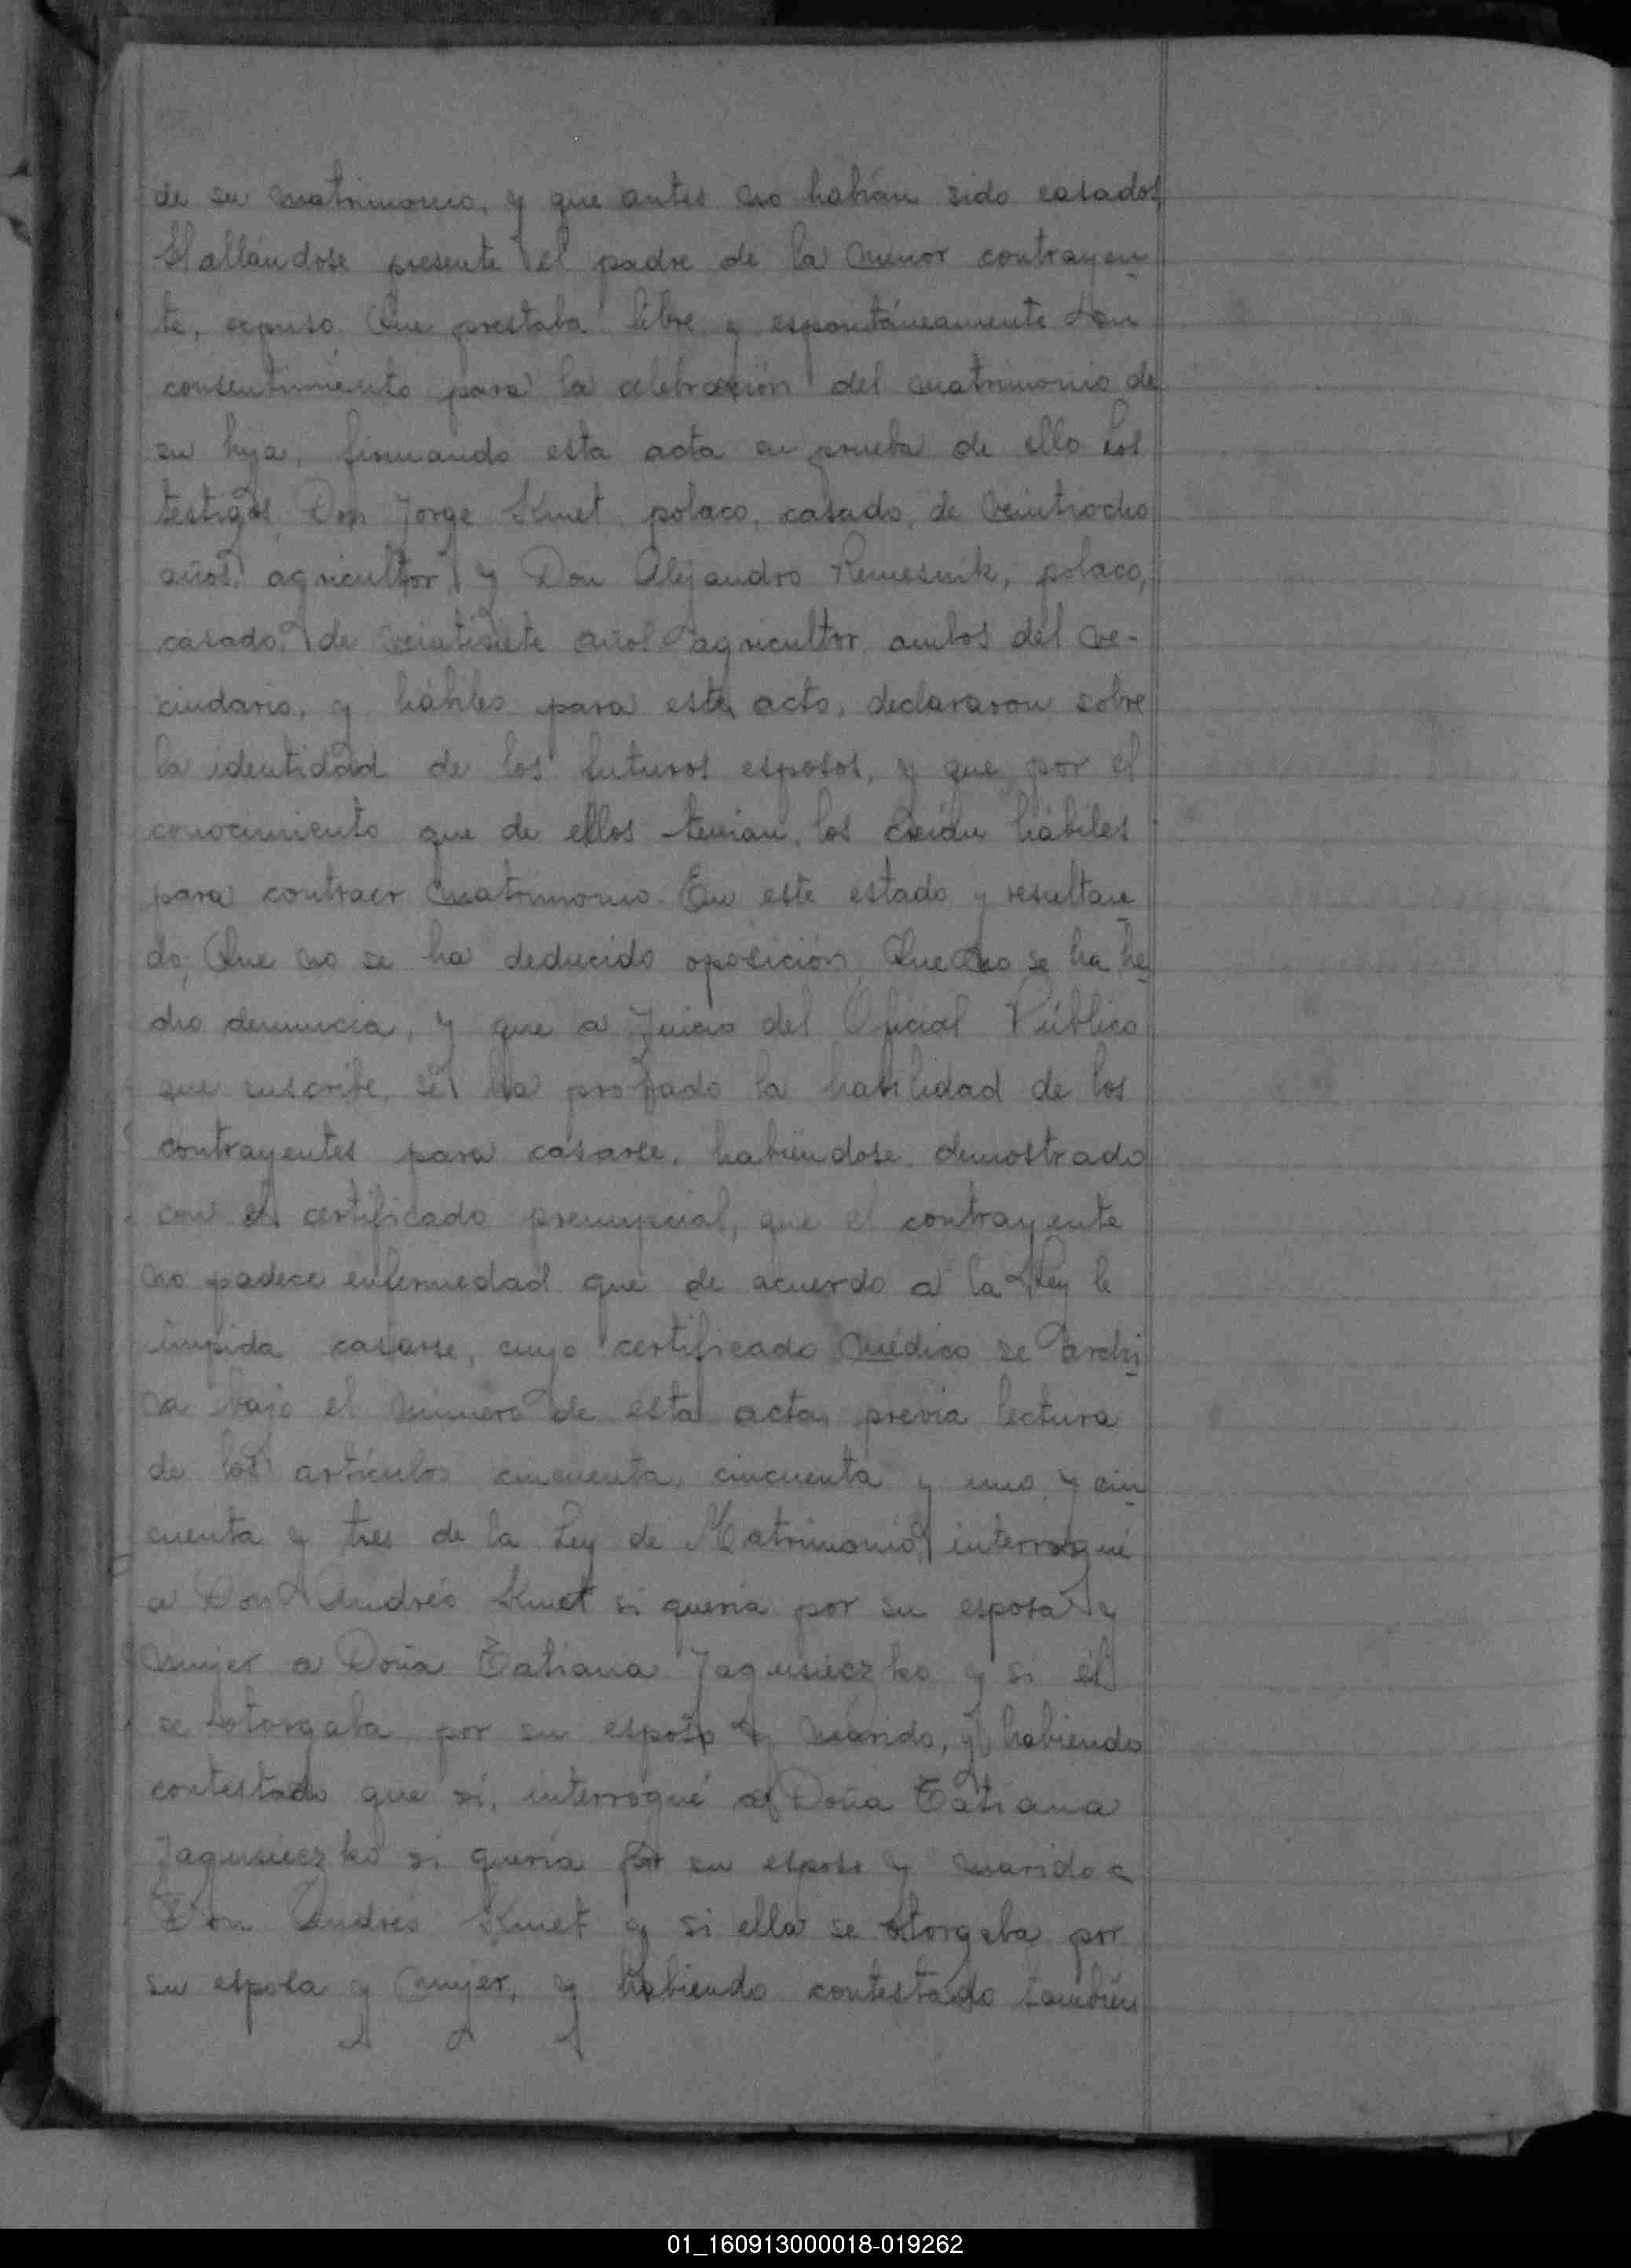 de su matrimonio, y que antes no habían sido casados,
Hallándose presente el padre de la menor contrayen
te, expuso. Que prestaba libre y espontáneamente su
consentimiento para la celebración del matrimonio de
su hija, firmando esta acta en prueba de ello Los
testigos, Don Jorge Kmet, polaco, casado, de veintiocho
años, agricultor, y Don Alejandro Remesnik, polaco,
casado, de veintisiete años agricultor, ambos del ve-
cindario, y hábiles para este acto, declararon sobre
la identidad de los futuros esposos, y que por el
conocimiento que de ellos tenían, los creían hábiles
para contraer matrimonio. En este estado y resultan
do, Que no se ha deducido oposición, Que no se ha he
cho denuncia, y que a Juicio del Oficial Público
que suscribe, se ha probado la habilidad de los
contrayentes para casarse, habiéndose demostrado
con el certificado prenupcial, que el contrayente
no padece enfermedad que de acuerdo a la Ley le
impida casarse, cuyo certificado médico se archi
va bajo el número de esta acta, previa lectura
de los artículos cincuenta, cincuenta y uno, y cin
cuenta y tres de la Ley de Matrimonio, interrogué
a Don Andrés Kmet si quería por su esposa y
mujer a Doña Tatiana Jagusieczko y si él
se otorgaba por su esposo y marido, y habiendo
contestado que sí, interrogué a Doña Tatiana
Jagusieczko si quería por su esposo y marido a
Don Andrés Kmet y si ella se otorgaba por
su esposa y mujer, y habiendo contestado también
01_160913000018-019262